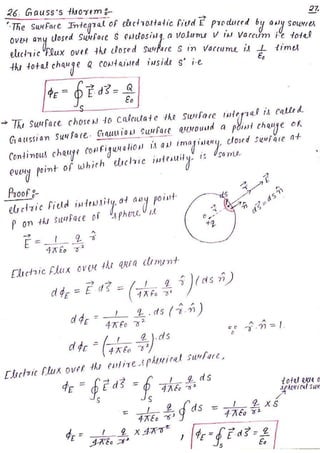 26. Gauss's theorem :-
27.
"The Surface Integral of electrostatic field E⃗ produced by any sources
over any closed Surface S enclosing a volume V in Vaccum i.e total
electric flux over the closed Surface S in Vaccume is 1/ε₀ times
the total charge Q contained inside S' i.e
ϕE = ∮S E⃗ ds⃗ = Q/ε₀
→ The Surface chosen to Calculate the Surface integral is called
Gaussian Surface. Gaussian Surface arround a point charge or
Continous charge Configuration is an imaginary, closed surface at
every point of which electric intensity is same.
Proof :-
electric field intensity at any point
P on the Surface of sphere is
E⃗ = 1/4πε₀ q/r² r̂
Electric flux over the area element
dϕE = E⃗ ds⃗ = (1/4πε₀ q/r² r̂)(ds n̂)
dϕE = 1/4πε₀ q/r² . ds (r̂.n̂)
∵ r̂.n̂ = 1.
dϕE = (1/4πε₀ q/r²).ds
Electric flux over the entire spherical surface,
ϕE = ∮S E⃗ ds⃗ = ∮S 1/4πε₀ q/r² ds
= 1/4πε₀ q/r² ∮S ds = 1/4πε₀ q/r² x S
total area of
spherical surface
ϕE = 1/4πε₀ q/r² x 4πr² , ϕE = ∮S E⃗ ds⃗ = q/ε₀
ds
r
+q
P
E⃗
ds⃗ = ds n̂